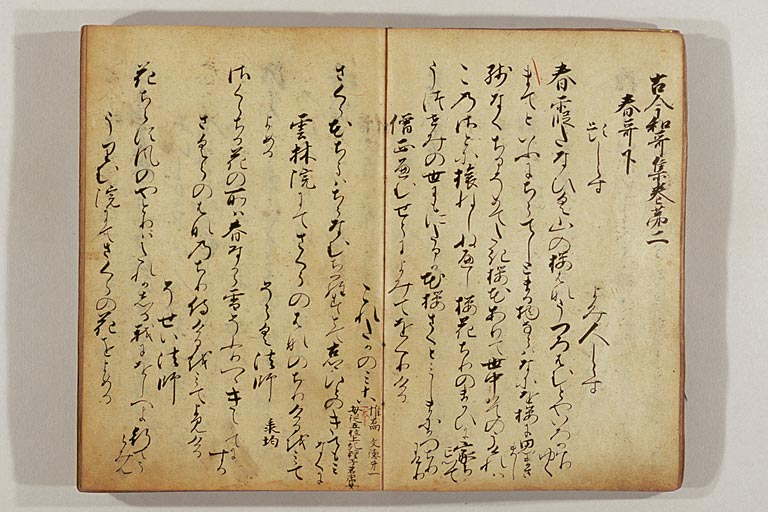 古今和哥集巻第二
春哥下
題しらす
よみ人しらす
春霞たなひく山の桜花うつろはむとや色かはりゆく
まてといふにちらてしとまる物ならはなにを桜に思まさまし
残なくちるそめてたき桜花ありて世中はてのうけれは
この里に旅ねしぬへし桜花ちりのまかひに家ちわすれて
うつせみの世にもにたるか花桜さくとみしまにかつちりにけり
僧正へんせうによみてをくりける
これたかのみこ
惟喬 文徳第一
母従五位上紀静子名虎女
さくら花ちらはちらなむちらすとてふるさと人のきてもみなくに
雲林院にてさくらの花のちりけるをみて
よめる
そうく法師 承均
桜ちる花の所は春なから雪そふりつゝきえかてにする
さくらの花のちり侍けるをみてよみける
そせい法師
花ちらす風のやとりはたれかしる我にをしへよ行てうらみん
うりむ院にてさくらの花をよめる